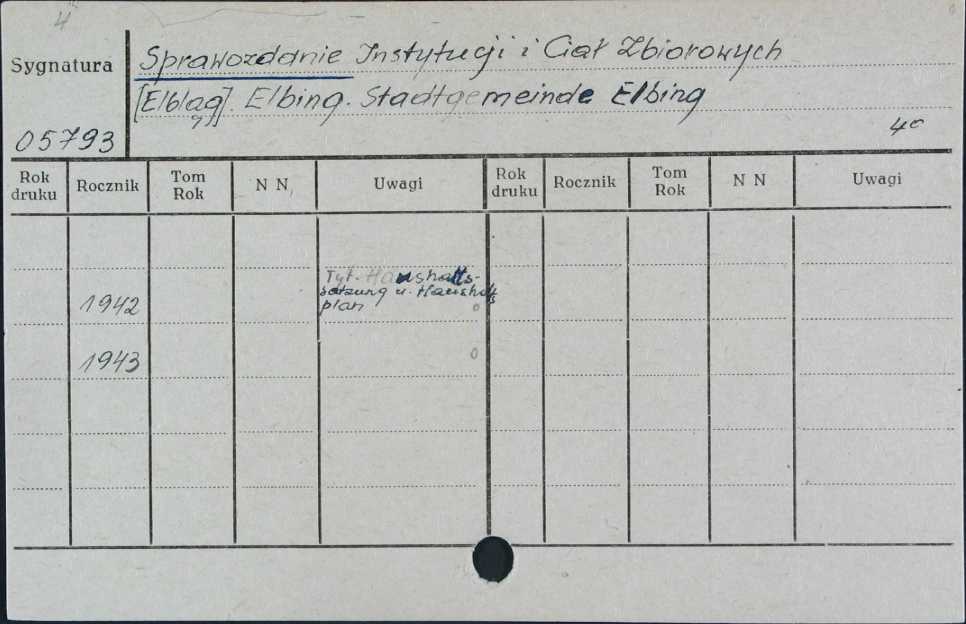 4
Sygnatura
Sprawozdanie Instytucji i Ciał Zbiorowych
[Elbląg]. Elbing. Stadtgemeinde Elbing
05793
4°
Rok druku Rocznik Tom Rok N N Uwagi Rok druku Rocznik Tom Rok N N Uwagi
Tyt. Haushalts-
satzung u. Haushalts
1942 plan o
1943 o